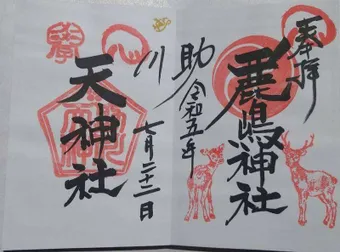 奉拝
鹿嶋神社
令和五年
助川
七月二十二日
天神社